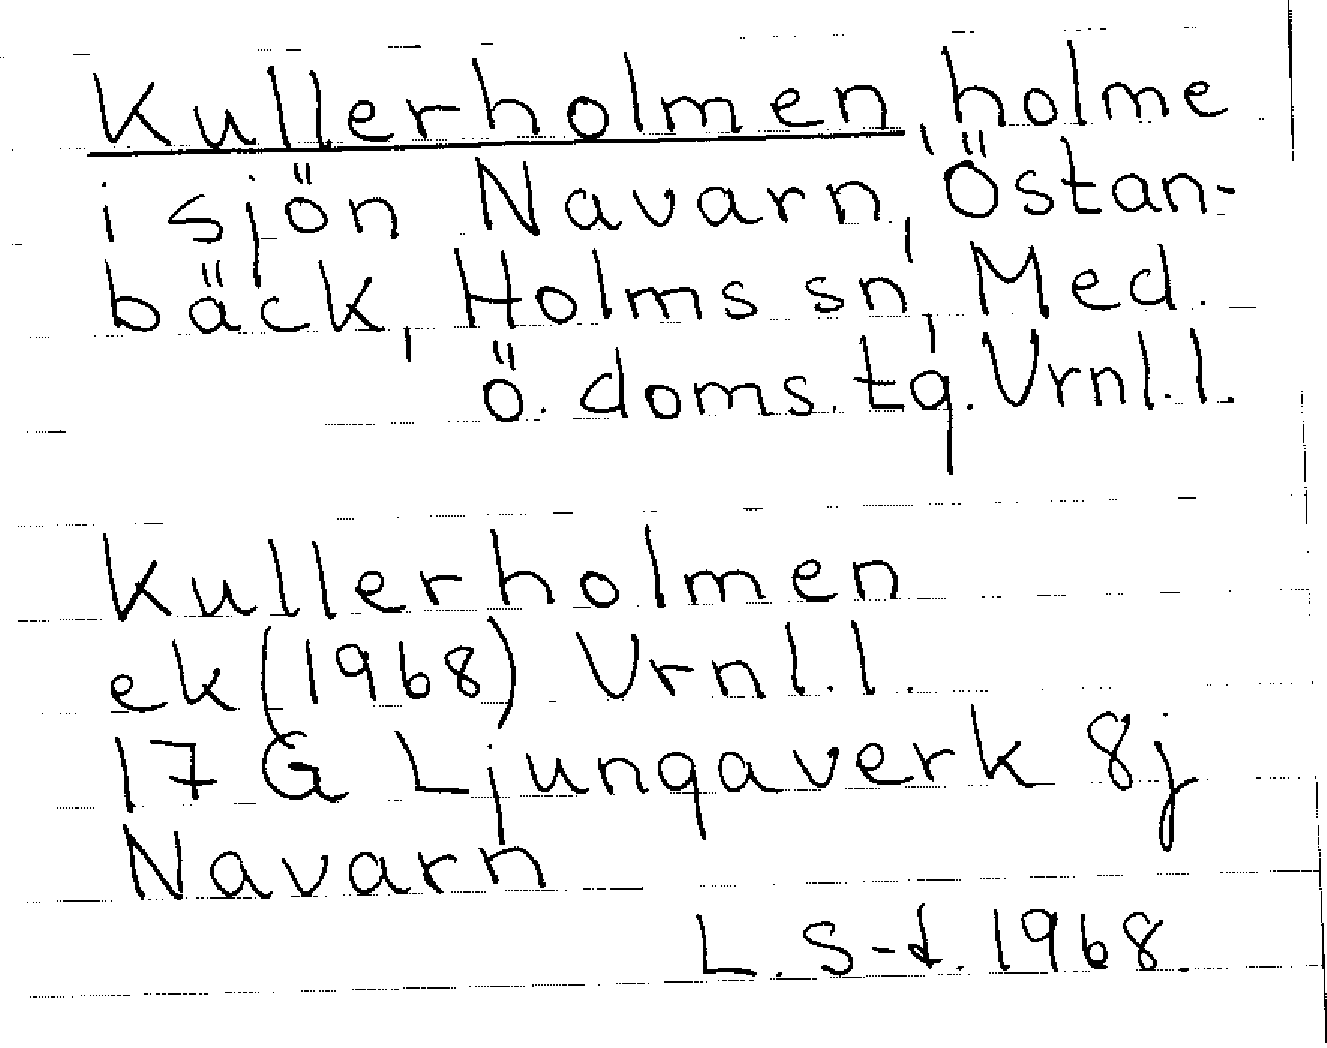 Kullerholmen, holme
i sjön Navarn, Östan-
bäck, Holms sn, Med.
ö. doms. tg. Vrnl.l.
Kullerholmen
ek (1968) Vrnl.l.
17 G Ljungaverk 8j
Navarn
L. S-d. 1968.